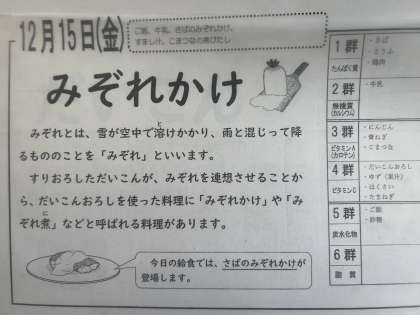 12月15日(金)
ご飯、牛乳、さばのみぞれかけ、
すまし汁、こまつなの煮びたし
みぞれかけ
みぞれとは、雪が空中で溶けかかり、雨と混じって降
るもののことを「みぞれ」といいます。
すりおろしただいこんが、みぞれを連想させることか
ら、だいこんおろしを使った料理に「みぞれかけ」や「み
ぞれ煮」などと呼ばれる料理があります。
今日の給食では、さばのみぞれかけが
登場します。
1群
たんぱく質
・さば
・とうふ
・鶏肉
2群
無機質
(カルシウム)
・牛乳
3群
ビタミンA
(カロテン)
・にんじん
・葉ねぎ
・こまつな
4群
ビタミンC
・だいこんおろし
・ゆず(果汁)
・はくさい
・たまねぎ
5群
炭水化物
・ご飯
・砂糖
6群
脂質